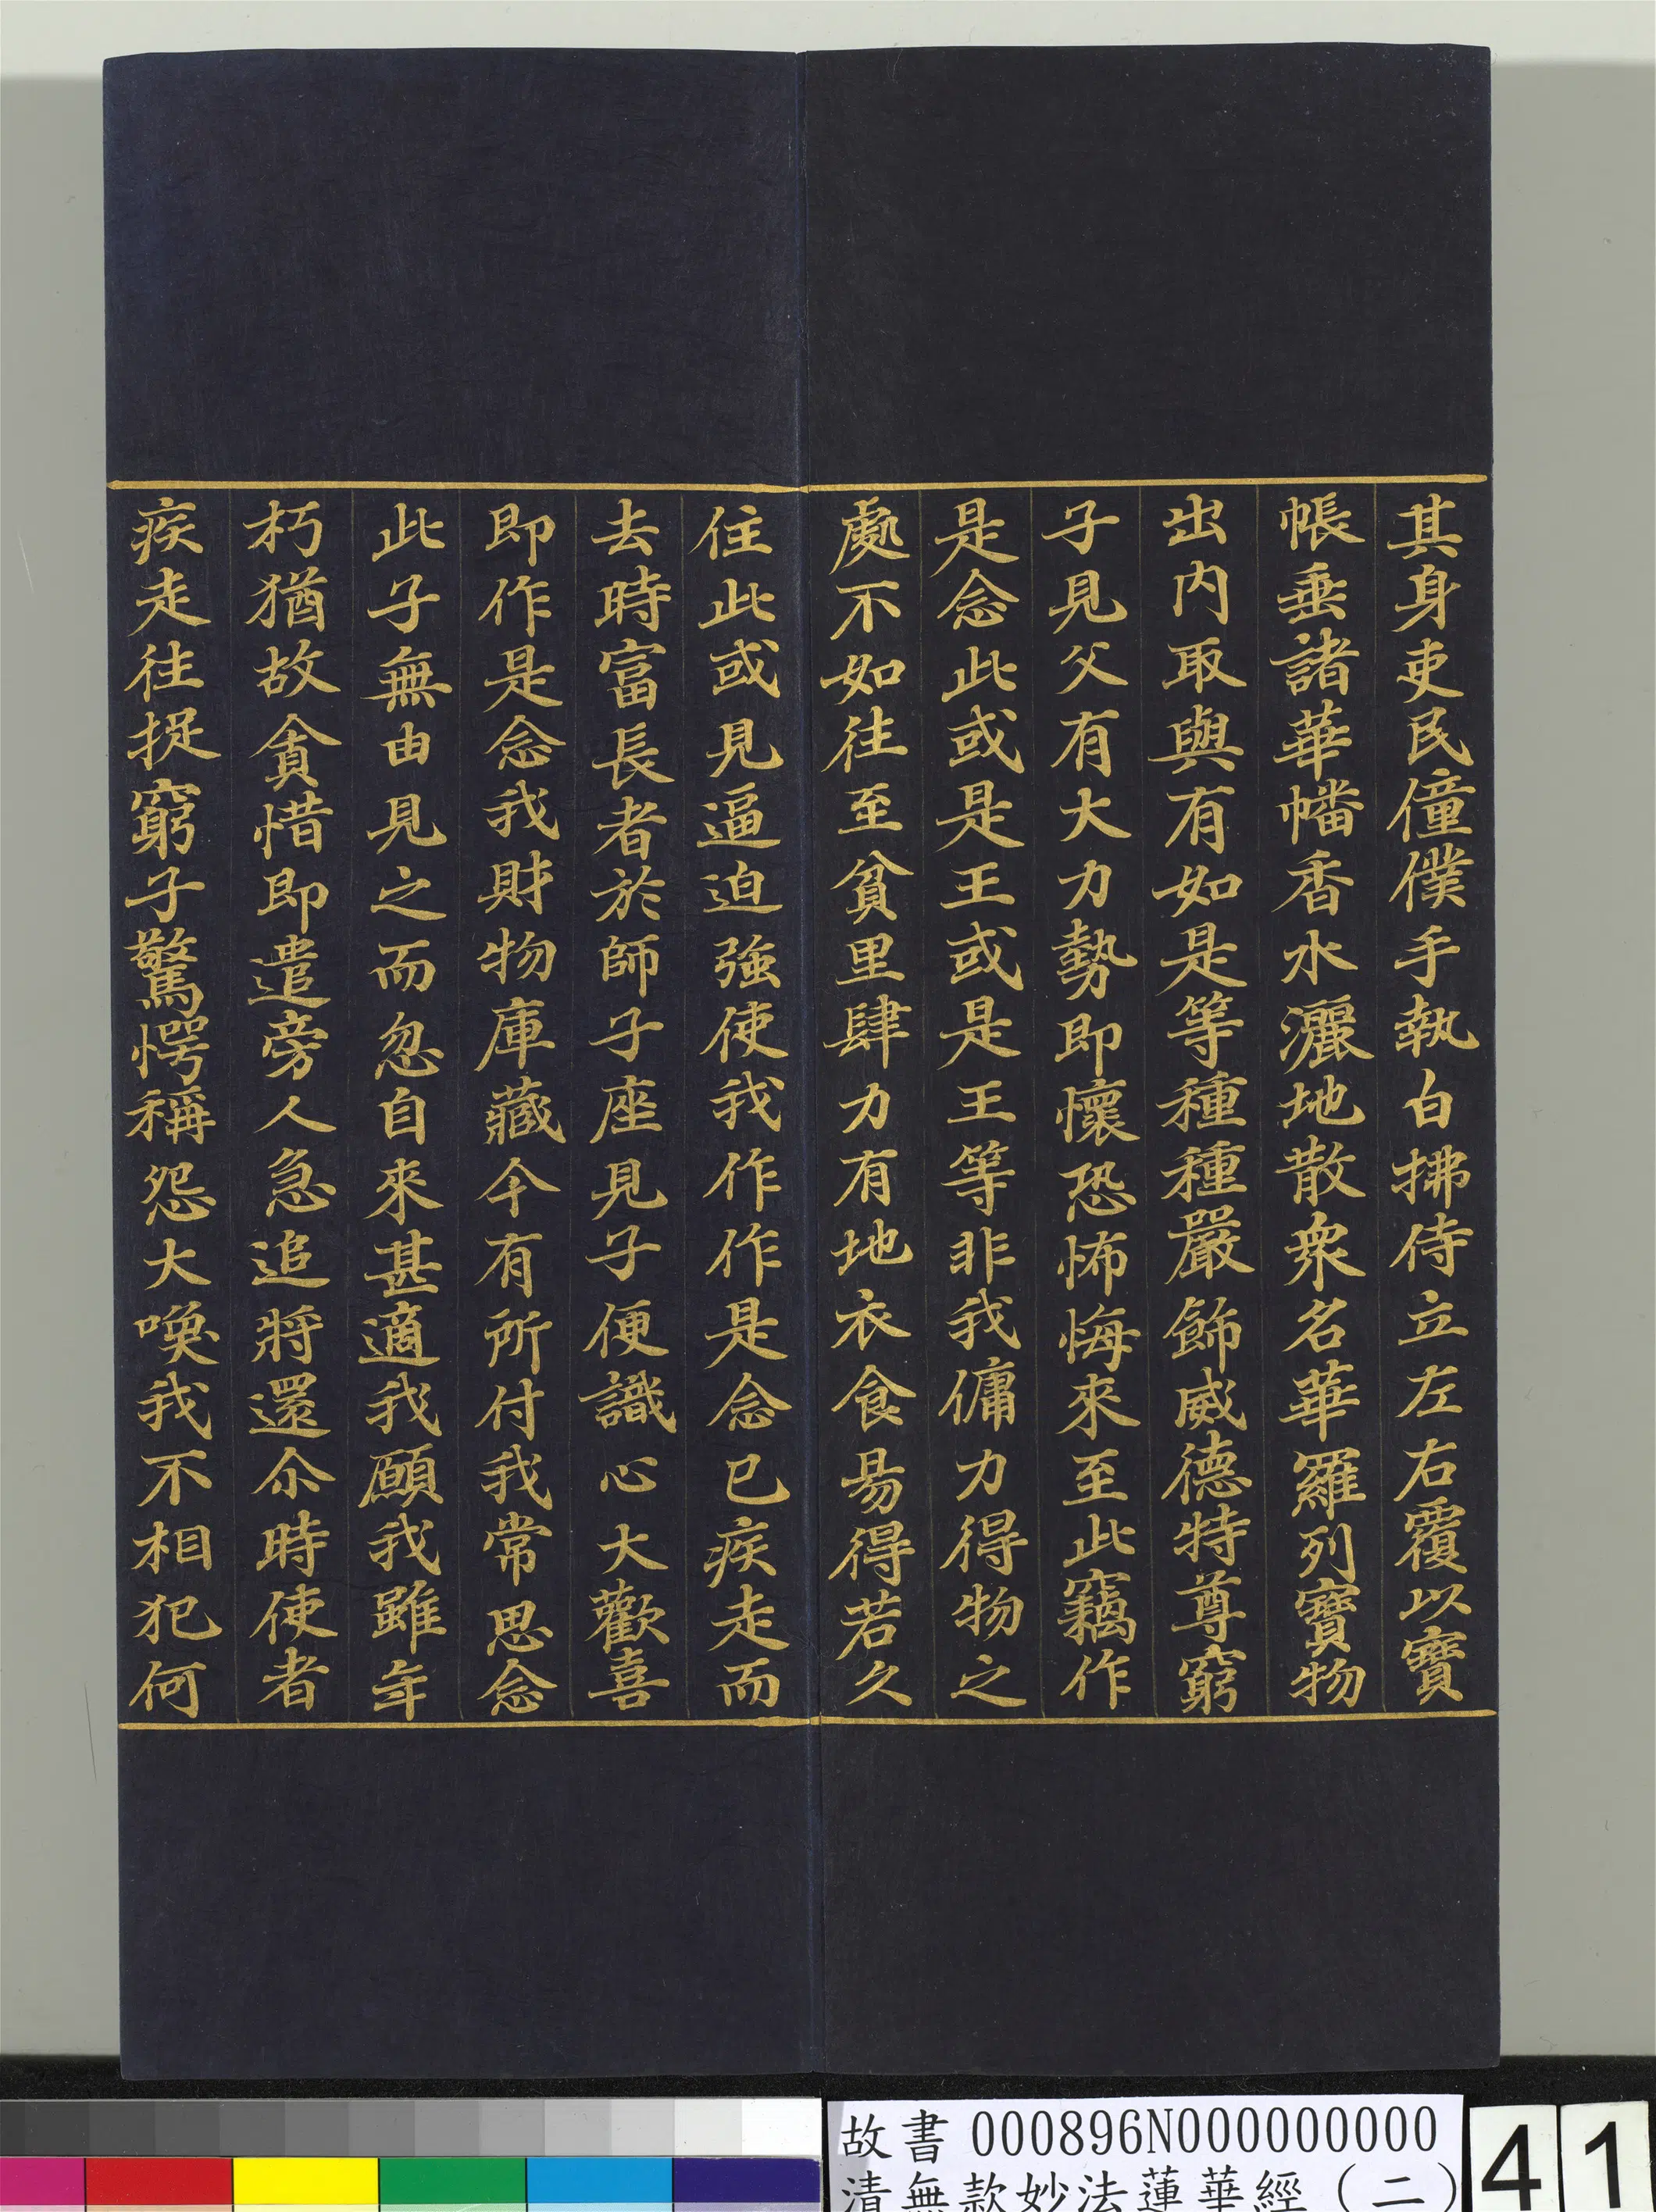 其身吏民僮僕手執白拂侍立左右覆以寶
帳垂諸華幡香水灑地散衆名華羅列寶物
出内取與有如是等種種嚴飾威德特尊窮
子見父有大力勢即懷恐怖悔來至此竊作
是念此或是王或是王等非我傭力得物之
處不如往至貧里肆力有地衣食易得若久
住此或見逼迫強使我作作是念已疾走而
去時富長者於師子座見子便識心大歡喜
即作是念我財物庫藏今有所付我常思念
此子無由見之而忽自來甚適我願我雖年
朽猶故貪惜即遣旁人急追將還尒時使者
疾走往捉窮子驚愕稱怨大喚我不相犯何
故書 000896N000000000
清無款妙法蓮華經（二）
41